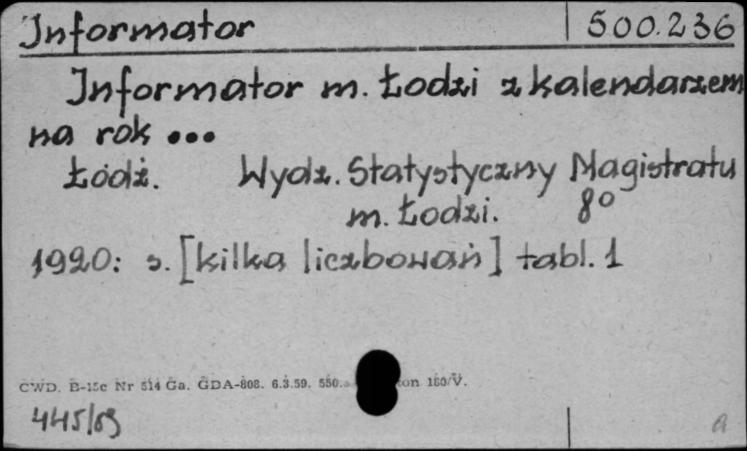 Informator 500.236
Informator m. Łodzi z kalendarzem
na rok ...
Łódź. Wydz. Statystyczny Magistratu
m. Łodzi. 8°
1920: s. [kilka liczbowań] tabl. 1
CWD. B-15c Nr 514 Ga. GDA-808. 6.3.59. 550. on 180/V.
445/69 a